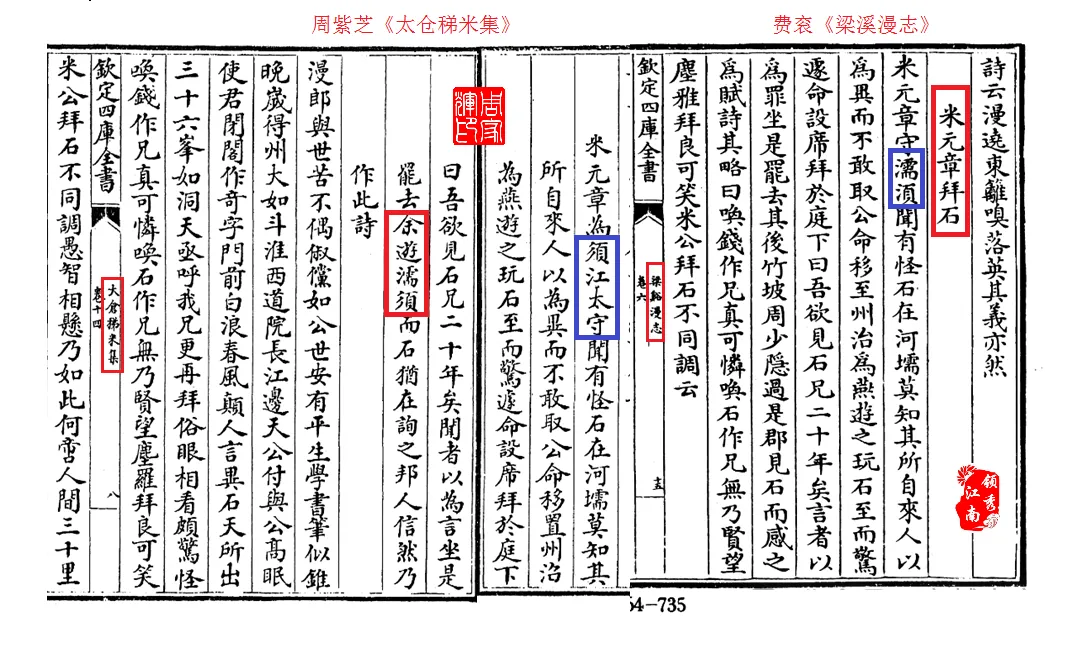 周紫芝《太仓稊米集》
费衮《梁溪漫志》
詩云漫遶東籬嗅落英其義亦然
米元章拜石
米元章守濡須聞有怪石在河壖莫知其所自來人以
為異而不敢取公命移至州治為燕遊之玩石至而驚
遽命設席拜於庭下曰吾欲見石兄二十年矣言者以
為罪坐是罷去其後竹坡周少隱過是郡見石而感之
為賦詩其略曰喚錢作兄真可憐喚石作兄無乃賢望
塵雅拜良可笑米公拜石不同調云
欽定四庫全書
梁谿漫志
卷六
54-735
米元章為須江太守聞有怪石在河壖莫知其
所自來人以為異而不敢取公命移置州治
為燕遊之玩石至而驚遽命設席拜於庭下
曰吾欲見石兄二十年矣聞者以為言坐是
罷去余遊濡須而石猶在詢之邦人信然乃
作此詩
漫郎與世苦不偶俶儻如公世安有平生學書筆似錐
晚歲得州大如斗淮西道院長江邊天公付與公高眠
使君閉閤作奇字門前白浪春風顛人言異石天所出
三十六峯如洞天亟呼我兄更再拜俗眼相看頗驚怪
喚錢作兄真可憐喚石作兄無乃賢望塵羅拜良可笑
欽定四庫全書
太倉稊米集
卷十四
八
米公拜石不同調愚智相懸乃如此何啻人間三十里
領秀江南